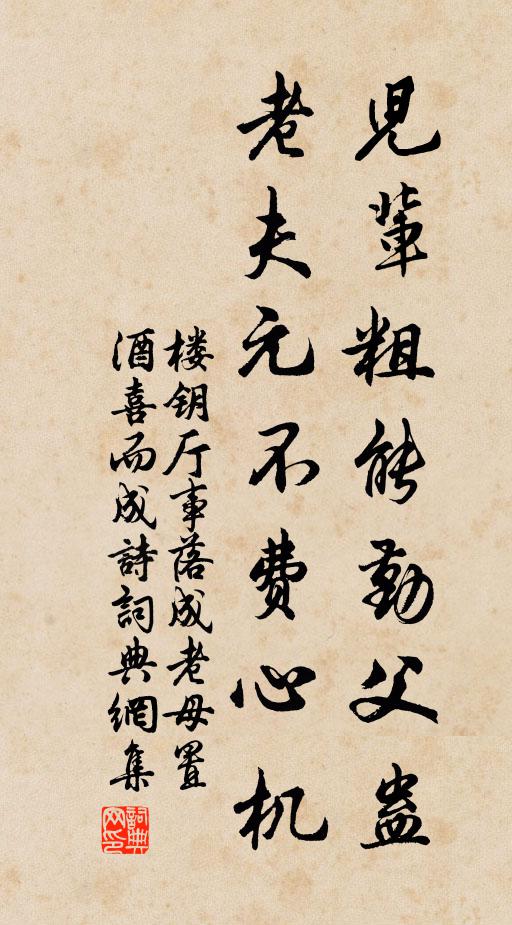 兒輩粗能勤父蛊
老夫元不費心机
楼钥厅事落成老母置
酒喜而成詩詞典網集
詞典网印